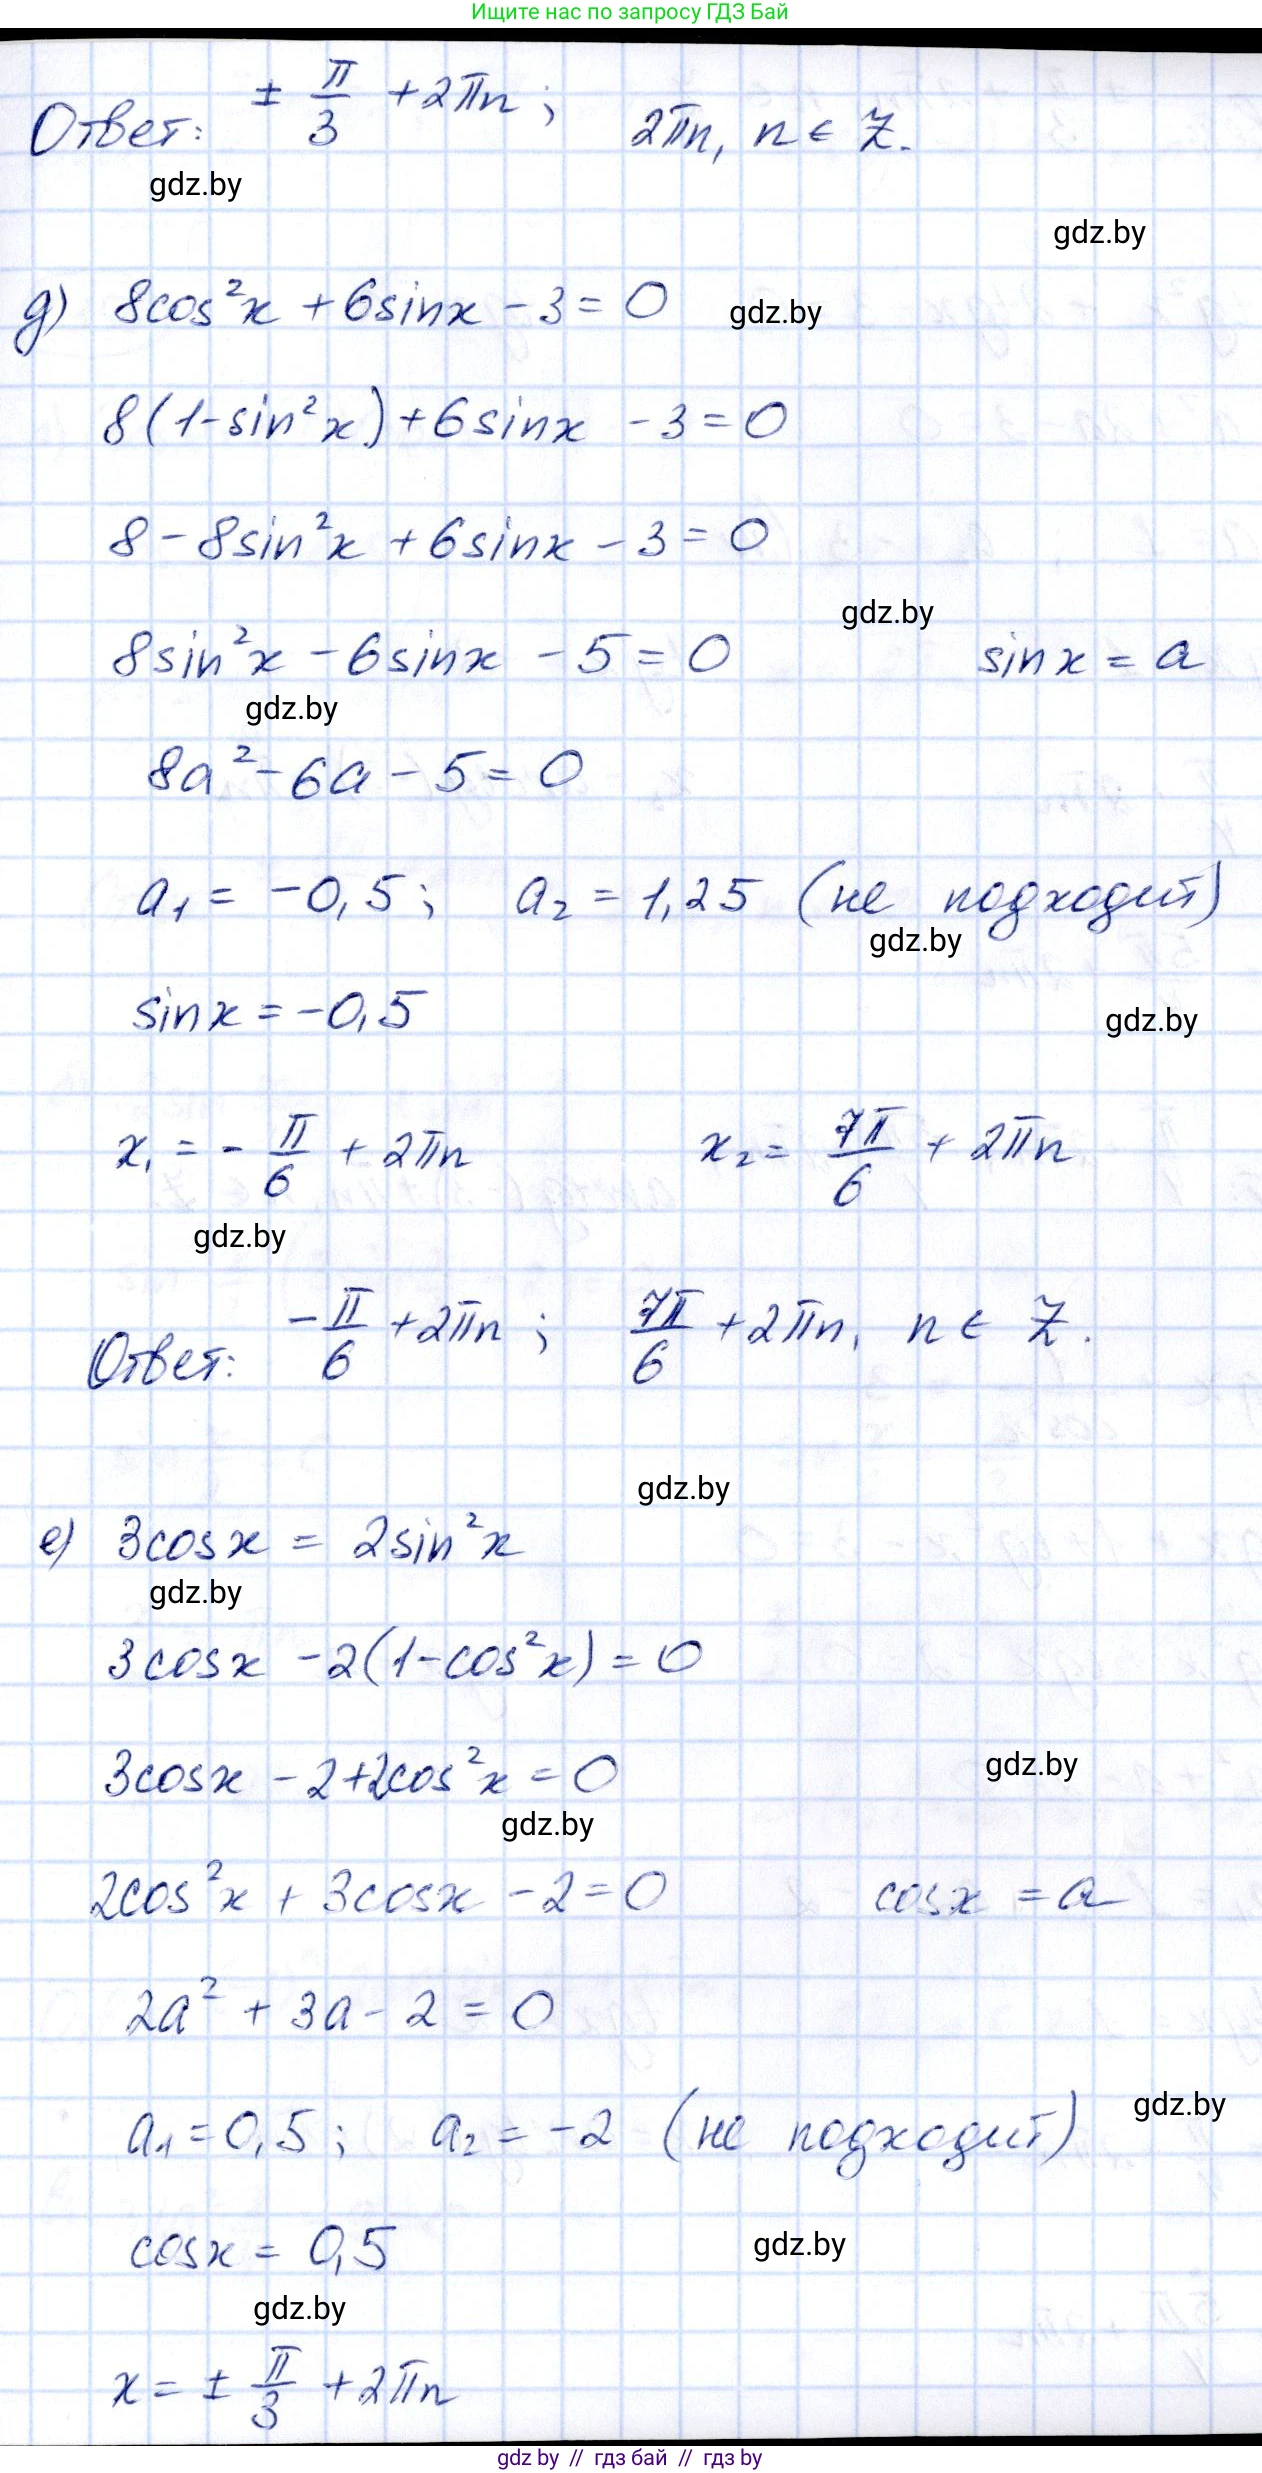 Ищите нас по запросу ГДЗ Бай
Ответ: ± π/3 + 2πn; 2πn, n ∈ Z.
gdz.by
gdz.by
д) 8cos²x + 6sinx - 3 = 0
gdz.by
8(1-sin²x) + 6sinx - 3 = 0
8 - 8sin²x + 6sinx - 3 = 0
gdz.by
8sin²x - 6sinx - 5 = 0 sinx = a
gdz.by
8a² - 6a - 5 = 0
a₁ = -0,5; a₂ = 1,25 (не подходит)
gdz.by
sinx = -0,5
gdz.by
x₁ = - π/6 + 2πn x₂ = 7π/6 + 2πn
gdz.by
Ответ: -π/6 + 2πn; 7π/6 + 2πn, n ∈ Z.
gdz.by
е) 3cosx = 2sin²x
gdz.by
3cosx - 2(1-cos²x) = 0
gdz.by
3cosx - 2 + 2cos²x = 0
gdz.by
2cos²x + 3cosx - 2 = 0 cosx = a
2a² + 3a - 2 = 0
gdz.by
a₁ = 0,5; a₂ = -2 (не подходит)
cosx = 0,5
gdz.by
gdz.by
x = ± π/3 + 2πn
gdz by // гдз бай // гдз by